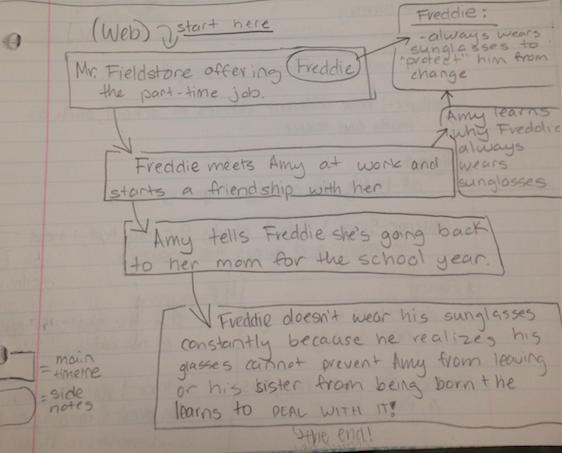 (Web) start here
Freddie:
-always wears
sunglasses to
"protect" him from
change
Mr. Fieldstore offering Freddie
the part-time job.
Amy learns
why Freddie
always
wears
sunglasses
Freddie meets Amy at work and
starts a friendship with her
Amy tells Freddie she's going back
to her mom for the school year.
Freddie doesn't wear his sunglasses
constantly because he realizes his
glasses cannot prevent Amy from leaving
or his sister from being born + he
learns to DEAL WITH IT!
the end!
= main
timeline
= side
notes